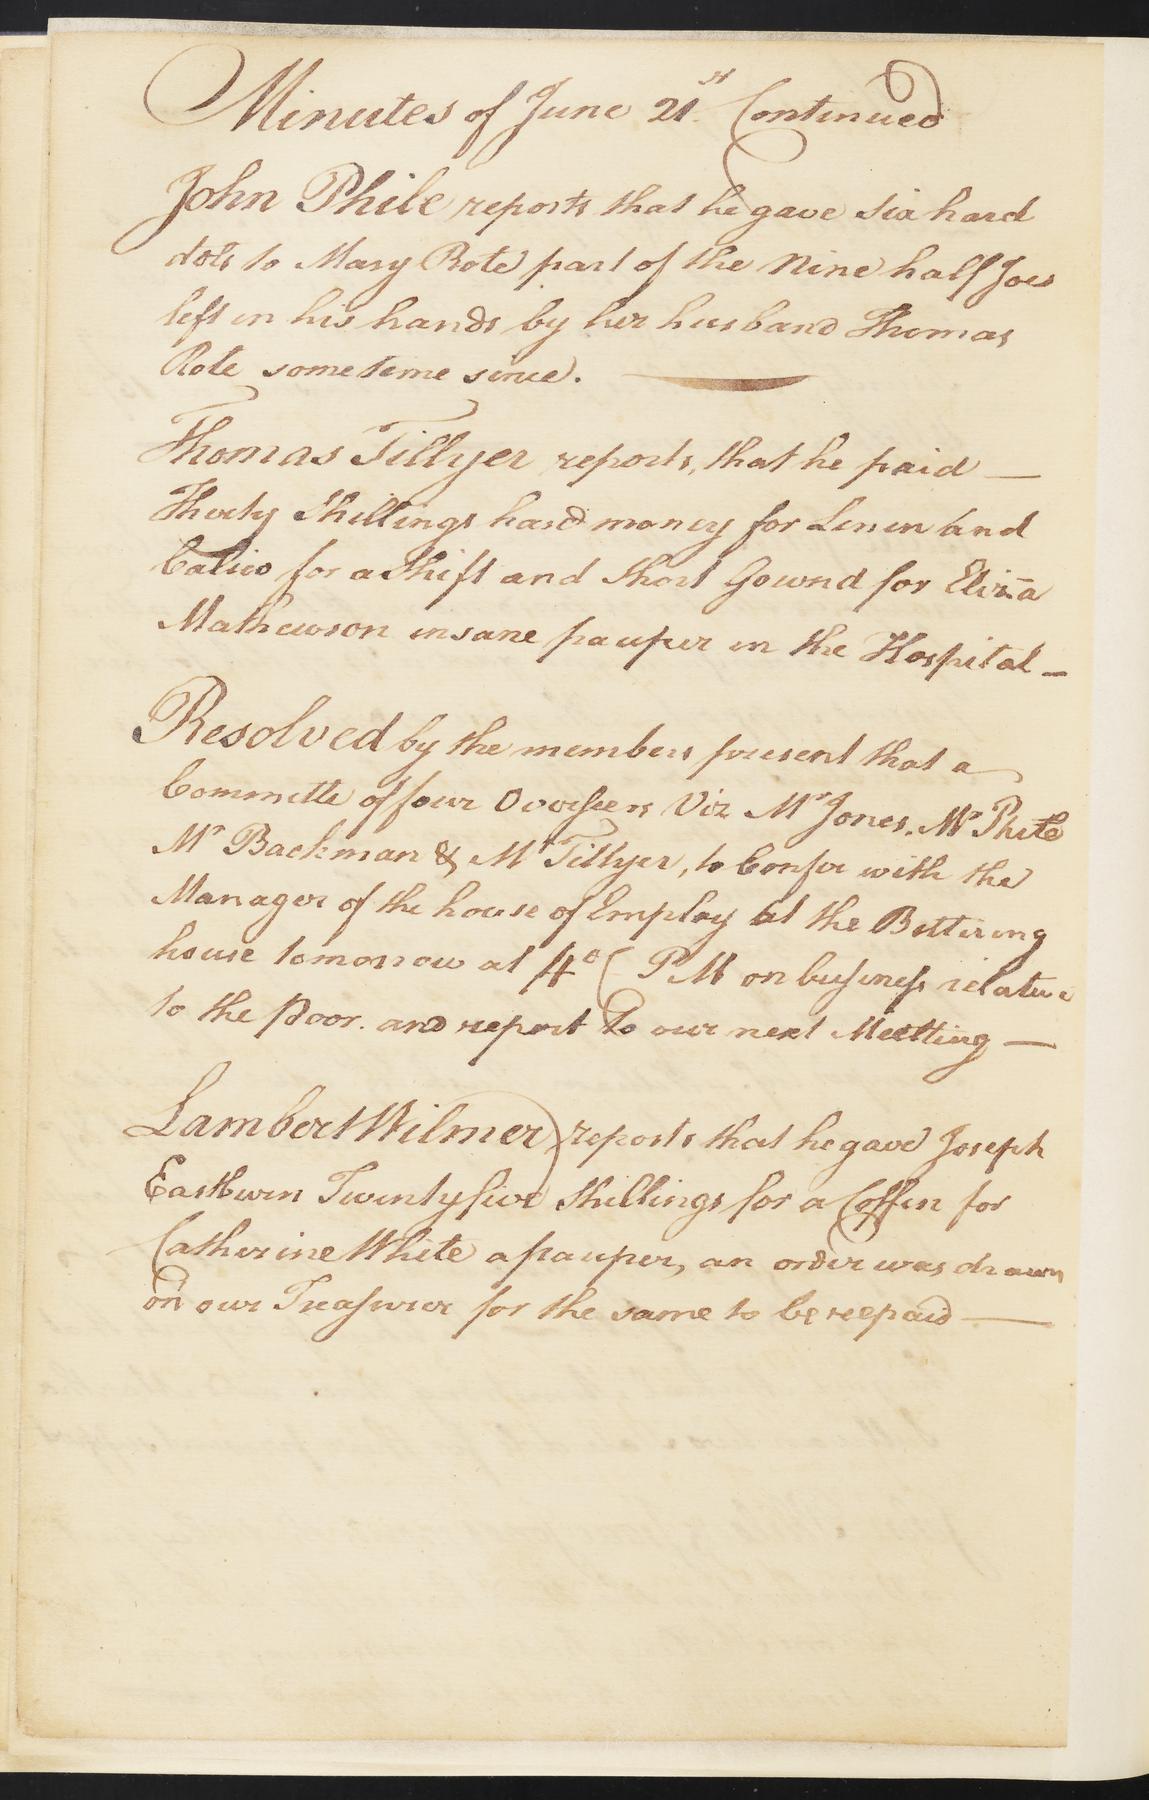 Minutes of June 21st Continued
John Phile reports that he gave six hard
dolrs to Mary Rote part of the Nine half Joes
left in his hands by her husband Thomas
Rote sometime since.
Thomas Tillyer reports, that he paid —
Thirty Shillings hard money for Linen and
Calico for a Shift and Short Gownd for Eliza
Mathewson insane pauper in the Hospital —
Resolved by the members present that a
Committe of four Overseers Viz Mr Jones, Mr Phile
Mr Backman & Mr Tillyer, to Confer with the
Manager of the house of Employ at the Bettering
house tomorrow at 4 oC PM on business relative
to the Poor. and report to our next Meetting —
Lambert Wilmer reports that he gave Joseph
Eastburn Twentyfive Shillings for a Coffin for
Catherine White a pauper, an order was drawn
on our Treasurer for the same to be reepaid —